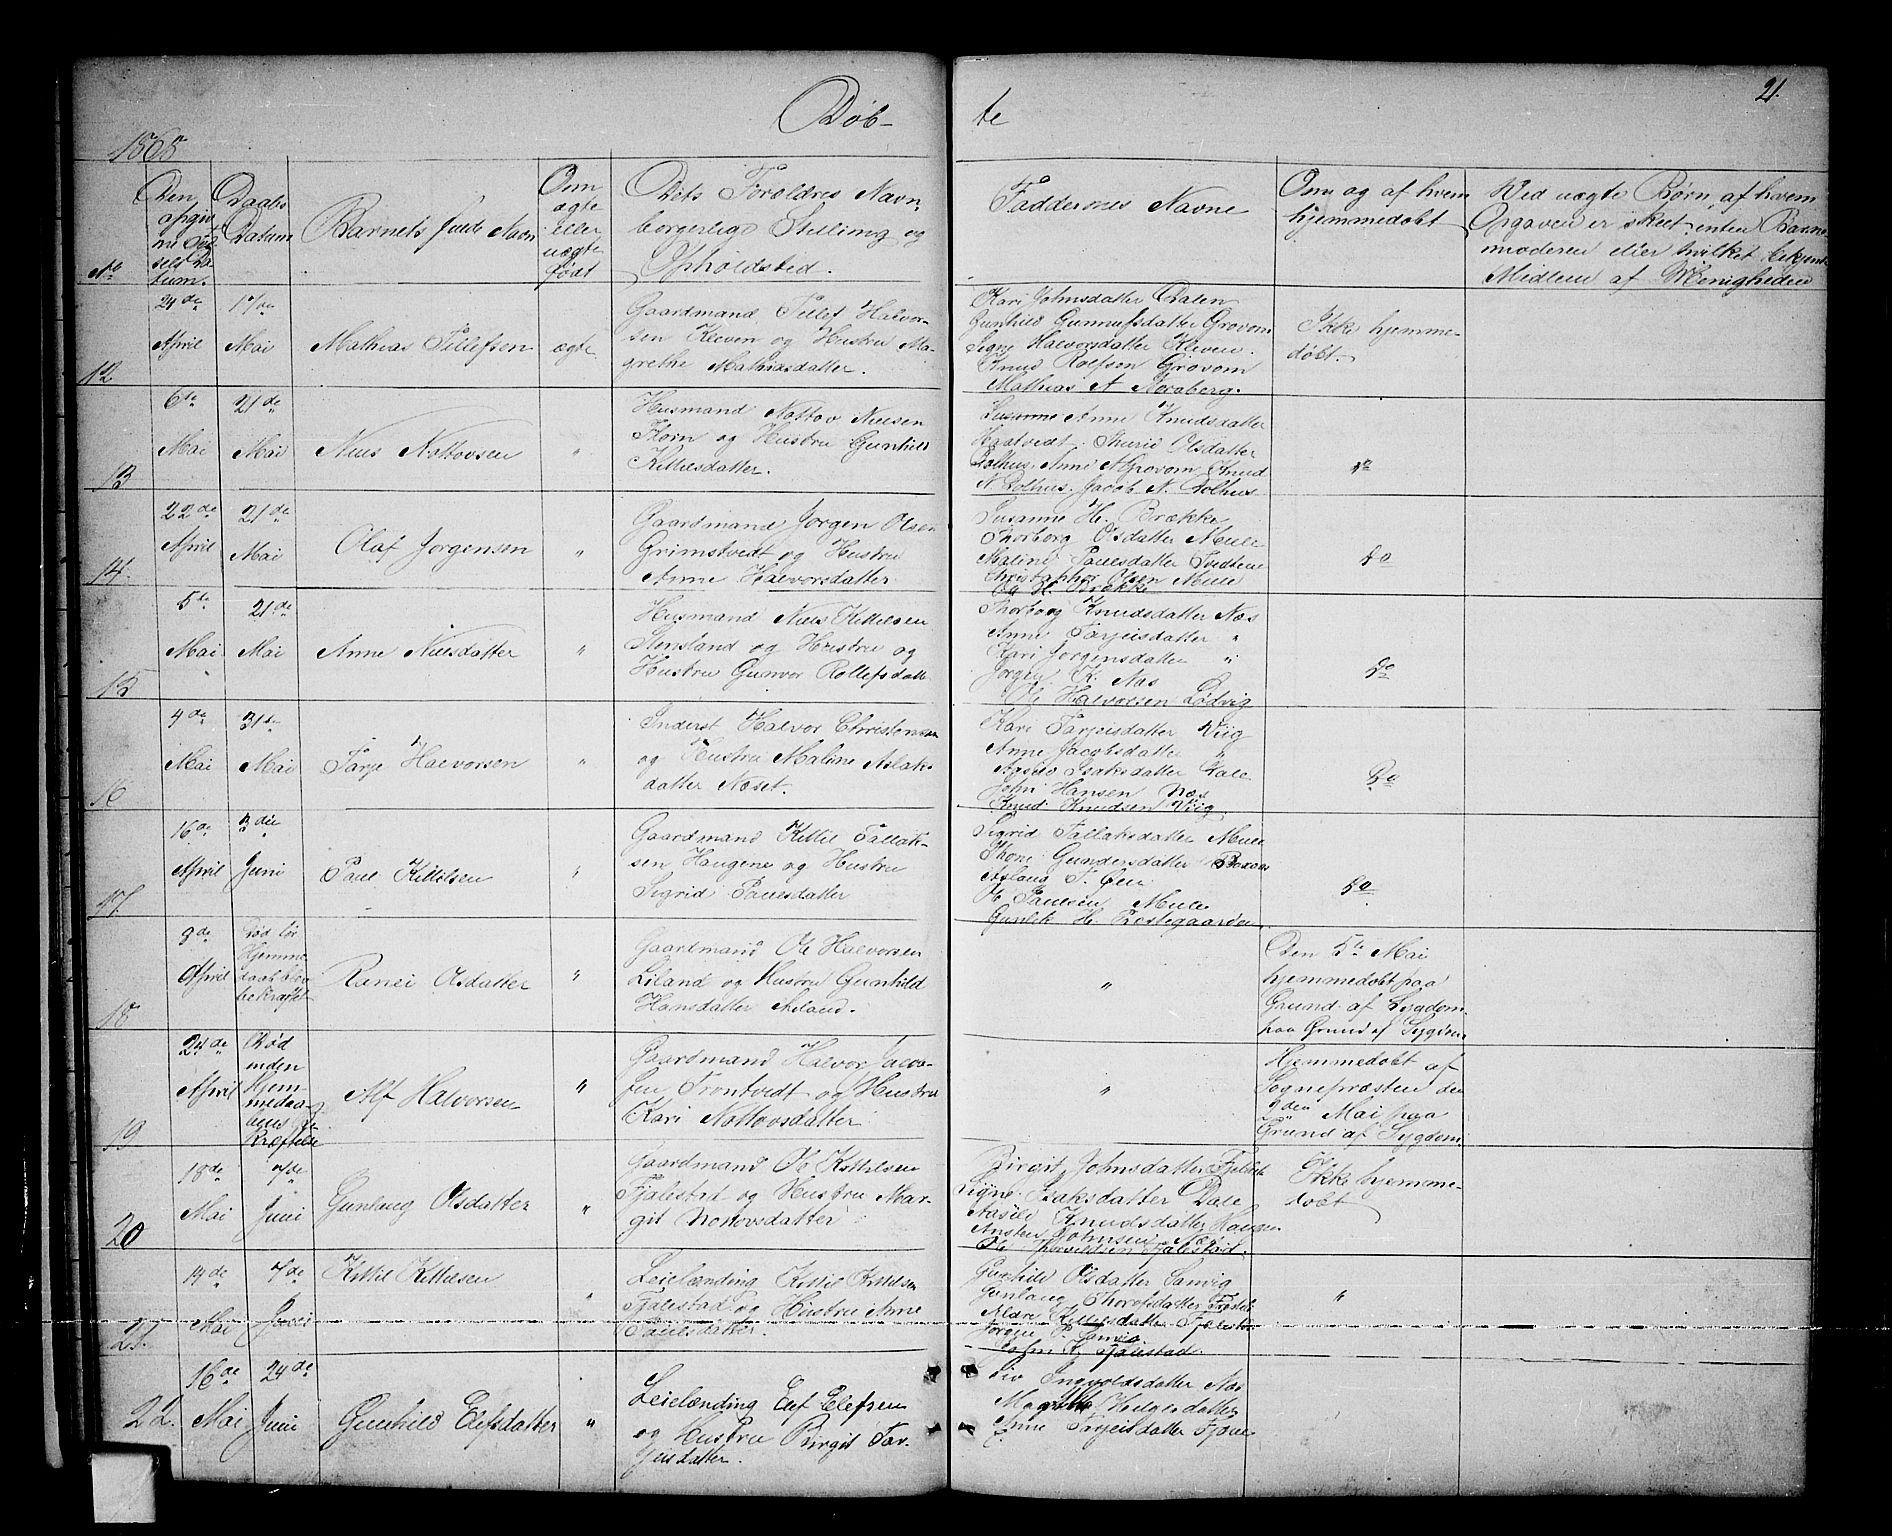 Døb-
te
21.
1868
No
Den
angiv
ne Fød
sels Da
tum.
Daabs
Datum
Barnets fulde Navn
Om
ægte
eller
uægte
født
Dets Forældres Navn,
borgerlige Stilling og
Opholdsted.
Faddernes Navne
Om og af hvem
hjemmedøbt
Ved uægte Børn, af hvem
Opgaven er skeet, enten Barne-
moderen eller hvilket bekjendt
Medlem af Menigheden
12
24de
April
17de
Mai
Mathias Tellefsen
ægte
Gaardmand Tellef Halvor-
sen Kleven og Hustru Ma-
grethe Mathiasdatter.
Kari Johnsdatter Dalen
Gunhild Gunnufsdatter Grovom
Signe Halvorsdatter Kleven.
Knud Rolfsen Grovom
Mathias A Noraberg.
Ikke hjemme-
døbt.
13
6te
Mai
21de
Mai
Niels Nottovsen
"
Husmand Nottov Nielsen
og Hustru Gunhild
Kittelsdatter.
Susanne Anne Knudsdatter
Olsdatter
Dolhus. Anne A Grovom Knud
N. Dolhus. Jacob N. Dolhus.
do
14.
22de
April
21de
Mai
Olaf Jorgensen
"
Gaardmand Jorgen Olsen
Grimstvedt og Hustru
Anne Halvorsdatter
Susanne H. Brække
Thorborg Olsdatter Mule
Maline Paulsdatter
Christopher Olsen Mule
Og H. Brække
do
15
5te
Mai
21de
Mai
Anne Nielsdatter
"
Husmand Niels Kittelsen
Stensland og Hustru og
Hustru Gunvor Rollefsdatt
Thorborg Knudsdatter Næs
Anne Tarjeisdatter "
Kari Jorgensdatter "
Jorgen K. Næs
Ole Halvorsen Lødvig
do
16
4de
Mai
31te
Mai
Tarje Halvorsen
"
Inderst Halvor Christensen
og Hustru Maline Aslak-
datter Næset.
Kari Tarjeisdatter Viig
Anne Jacobsdatter "
Isaksdatter Dale
John Hansen Næs
Knud Knudsen Viig
do
17.
16de
April
3die
Juni
Paul Kittilsen
"
Gaardmand Kittil Tallak-
sen Haugene og Hustru
Sigrid Paulsdatter
Sigrid Tallaksdatter Mule
Thone Gundersdatter
Aslaug T. Øen.
Ole Paulsen Mule
Gunlek H. Prestegaarden
do
18
9de
April
Død før
Hjemme
daaben blev
bekræftet
Ranei Olsdatter
"
Gaardmand Ole Halvorsen
Liland og Hustru Gunhild
Hansdatter Liland.
"
Den 5te Mai
hjemmedøbt paa
Grund af Sygdom
paa Grund af Sygdom
19
24de
April
Død
inden
Hjem-
medaa-
bens Be-
kræftelse
Alf Halvorsen
"
Gaardmand Halvor Jacob-
sen Trontvedt og Hustru
Kari Nottovsdatter
"
Hjemmedøbt af
Sognepræsten den
9den Mai paa
Grund af Sygdom.
20
18de
Mai
7de
Juni
Gunlaug Olsdatter
"
Gaardmand Ole Kittilsen
Fjalestad og Hustru Mar-
git Nottovsdatter
Birgit Johnsdatter
Signe Isaksdatter Dale
Aasild Knudsdatter
Johnsen Næs
Ole Fjalestad.
Ikke hjemme-
døbt
21.
19de
Mai
7de
Juni
Kittil Kittilsen
"
Leielænding Kittil Kittilsen
Fjalestad og Hustru Anne
Paulsdatter.
Gunhild Olsdatter Sanvig
Gunlaug Thorofsdatter
Kittilsdatter
Jorgen P. Sanvig
John K. Fjalestad.
"
22.
16de
Mai
24de
Juni
Gunhild Elefsdatter
"
Leielænding Elef Elefsen
og Hustru Birgit Tar-
jeisdatter.
Liv Ingvoldsdatter Næs
Helgesdatter
Anne Tarjeisdatter